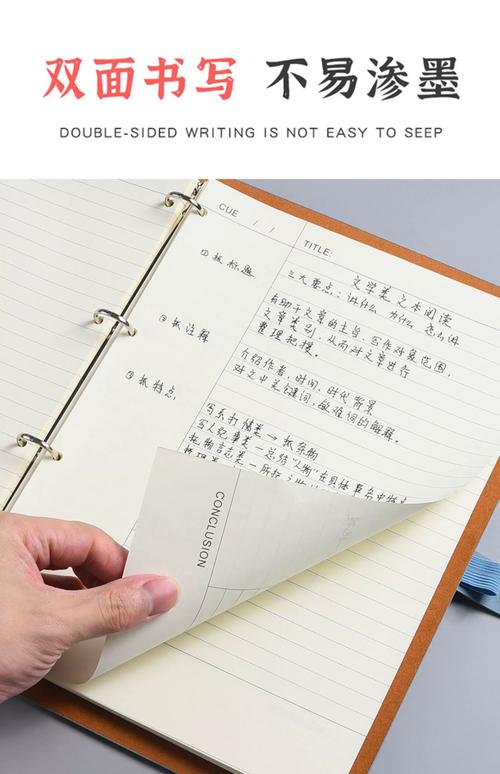 双面书写 不易渗墨
DOUBLE-SIDED WRITING IS NOT EASY TO SEEP
CUE / /
TITLE:
文学类文本阅读
①抓标题
三大要点：讲什么 为什么 怎么讲
有助于文章的主旨，写作对象范围，
文章类别，从而对文章进行
整理把握。
②抓注释
介绍作者，时间，时代背景
对文中关键词，敏难词的解释。
③抓特点，
写系抒情类 → 抓景物
写人纪事类 — 总结"人物"在具体事
托物言志类 — 所托之物
CONCLUSION